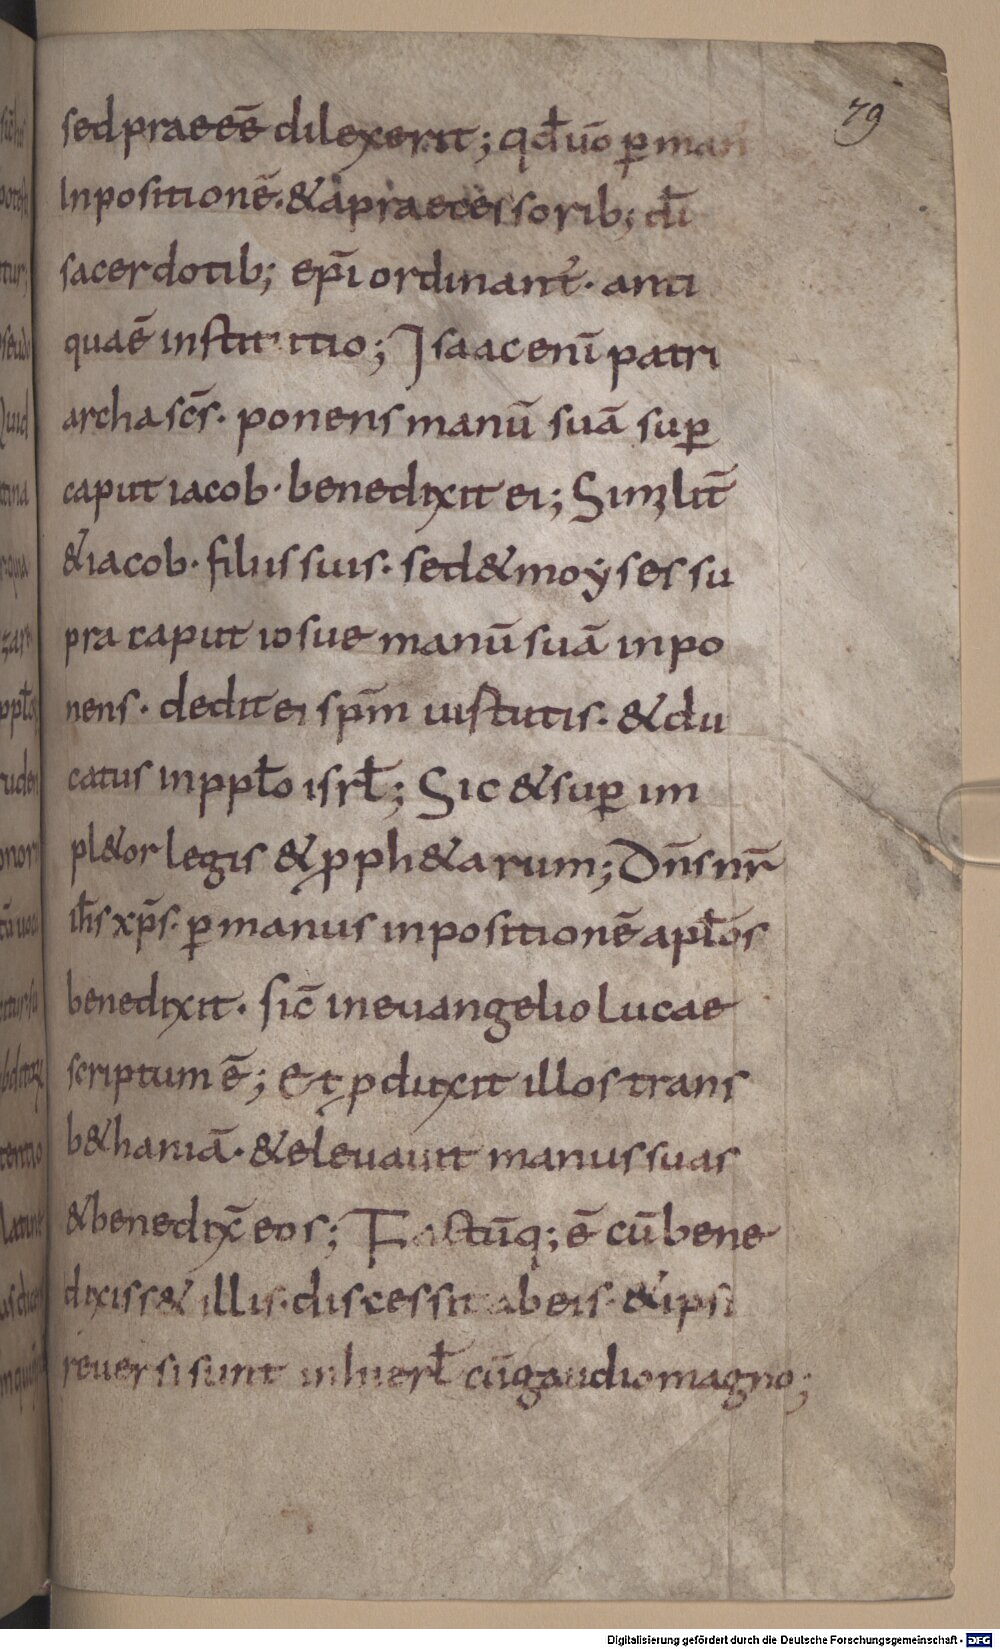 79
sed praeeē dilexerit; qđ uō ꝑ man
Inpositionē· & a praecessorib; dī
sacerdotib; ep̄i ordinant̄· anti
quaē institutio; Isaac enī patri
archa sc̄s· ponens manū suā suꝑ
caput iacob· benedixit ei; Simlit̄
& iacob· filiis suis· sed & moẏses su
pra caput iosue manū suā inpo
nens· dedit ei sp̄m uistutis· & du
catus in ppło isrł; Sic & suꝑ im
pl&or legis & ꝓph&arum; Dn̄s nr̄
ih̄s xp̄s· ꝑ manus inpositionē apłōs
benedixit· sic̄ in euangelio lucae
scriptum ē; Et ꝓduxit illos trans
b&haniā· & eleuauit manus suas
& benedix̄ eos; Factūq; ē cū bene
dixiss& illis· discessit ab eis· & ipsi
reuersi sunt in hierł cū gaudio magno;
Digitalisierung gefördert durch die Deutsche Forschungsgemeinschaft - DFG